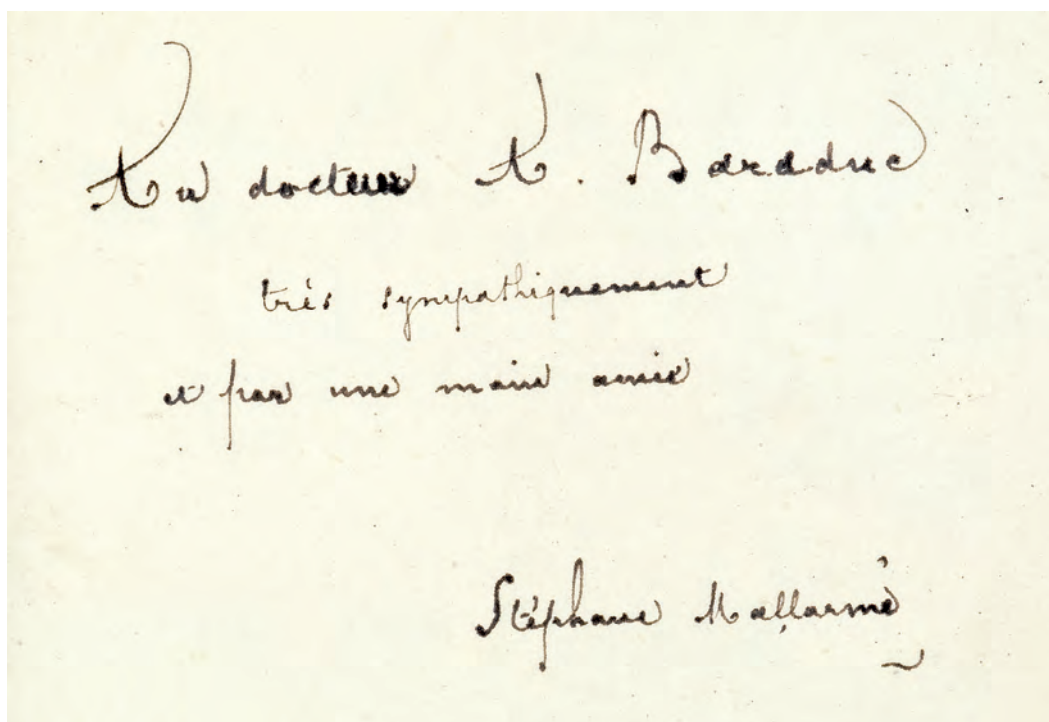 Au docteur A. Baraduc
très sympathiquement
et par une main amie
Stéphane Mallarmé